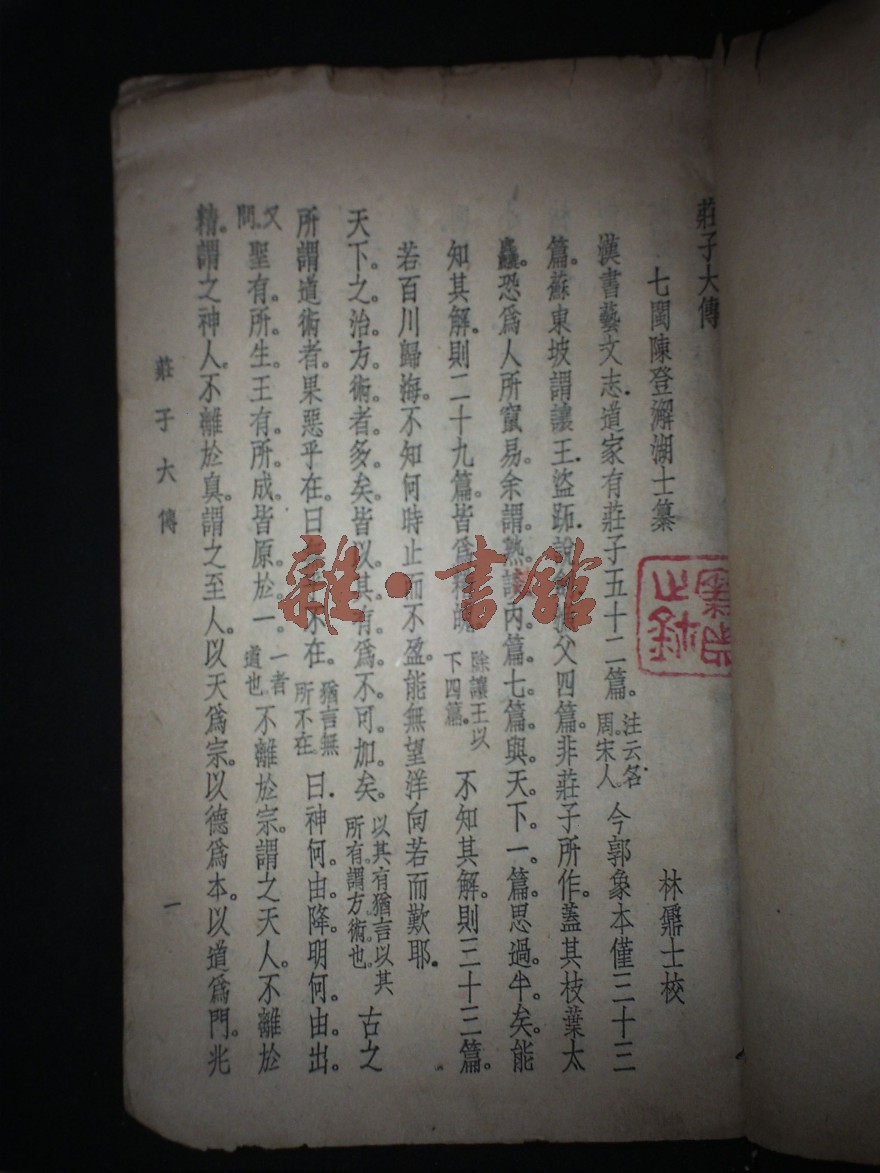 莊子大傳
七閩陳登澥湖士纂 林鼒士校
漢書藝文志道家有莊子五十二篇。注云名周宋人。今郭象本僅三十三
篇。蘇東坡謂讓王盜跖說父四篇。非莊子所作。蓋其枝葉太
恐爲人所竄易。余謂熟內篇七篇。與天下一篇。思過半矣。能
知其解。則二十九篇。皆爲除讓王以下四篇。不知其解。則三十三篇。
若百川歸海。不知何時止而不盈。能無望洋向若而歎耶。
天下之治方術者多矣。皆以其有爲不可加矣。以其有猶言以其所有。謂方術也。古之
所謂道術者。果惡乎在。曰不在。猶言無所不在曰神何由降。明何由出。
又問。聖有所生。王有所成。皆原於一。一者道也不離於宗。謂之天人。不離於
精。謂之神人。不離於真。謂之至人。以天爲宗。以德爲本。以道爲門。兆
莊子大傳 一
雜·書館
之鉨